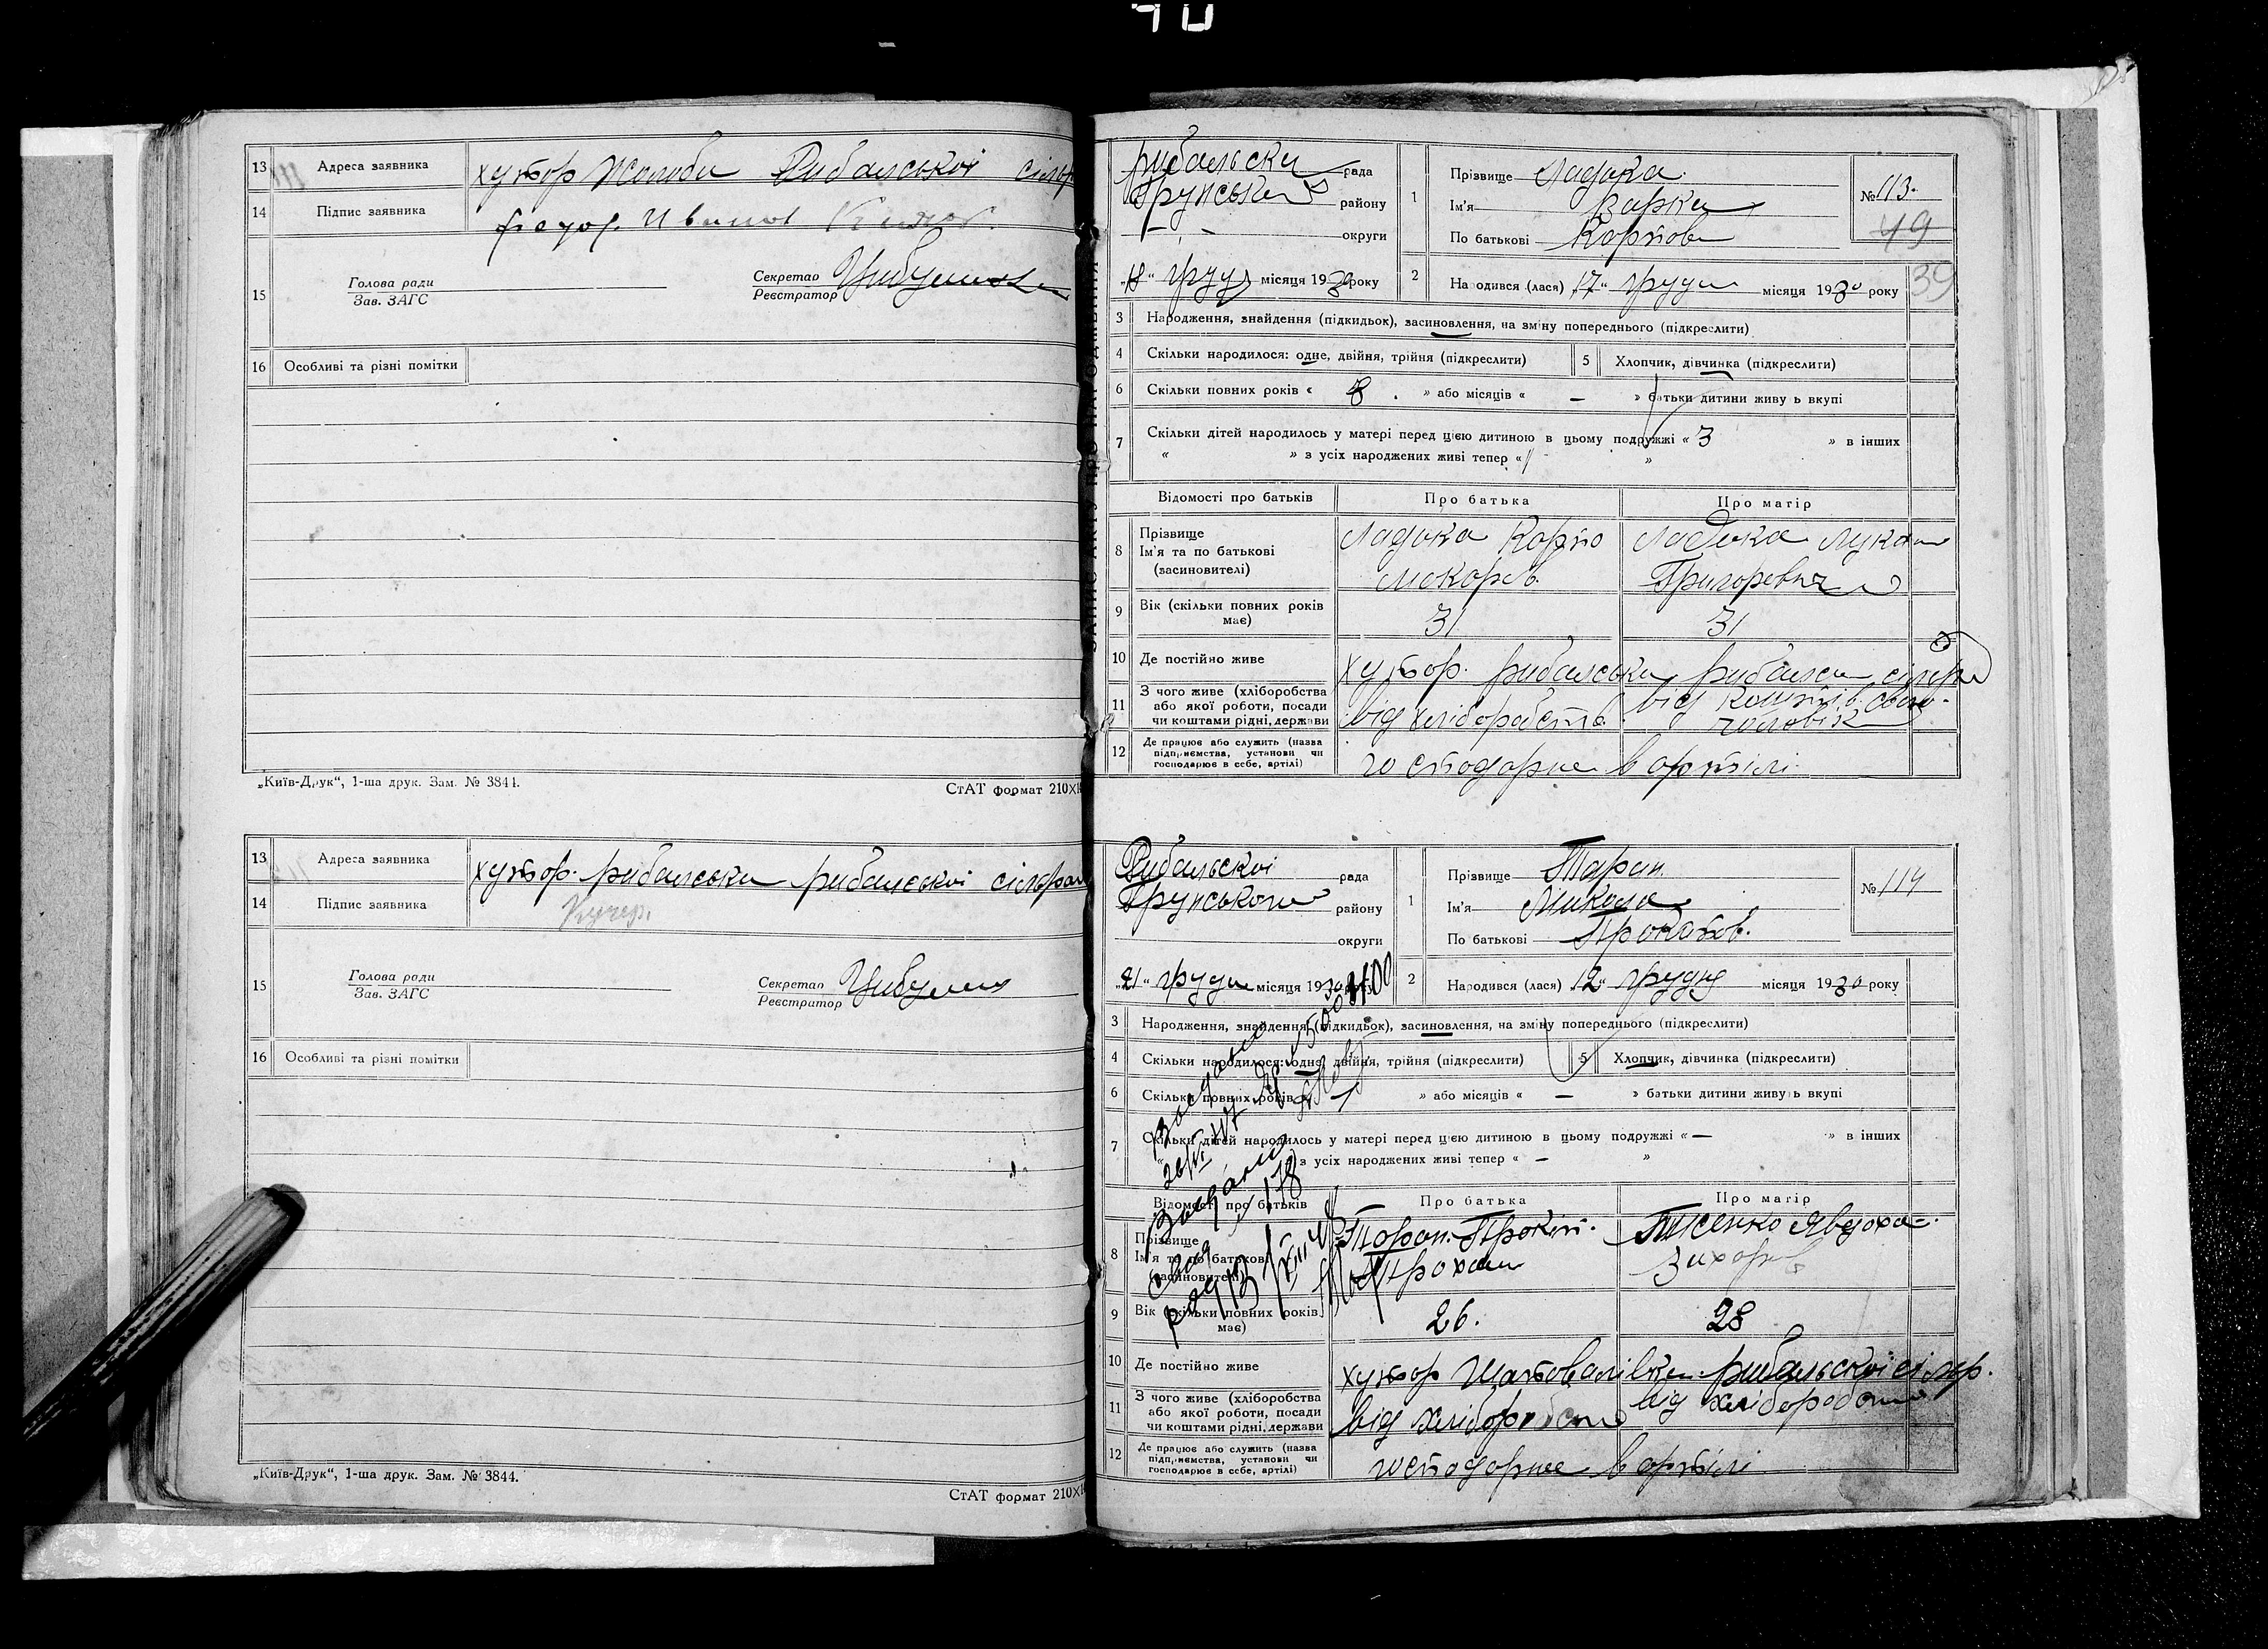 13 Адреса заявника хутор Рибальської
14 Підпис заявника Иванов
15 Голова ради Секретар
Зав. ЗАГС Реєстратор
16 Особливі та різні помітки
„Київ-Друк“, 1-ша друк. Зам. № 3844.
СтАТ формат 210×
13 Адреса заявника хутор. рибальськи рибальської сільрай
14 Підпис заявника Кучер.
15 Голова ради Секретар
Зав. ЗАГС Реєстратор
16 Особливі та різні помітки
„Київ-Друк“, 1-ша друк. Зам. № 3844.
СтАТ формат 210×
рибальски рада
Грунський району
округи
місяця 1930 року
1 Прізвище Ладика
Ім'я Варка
По батькові Корпова
№ 113.
49
2 Народився (лася) „17“ грудн місяця 1930 року
39
3 Народження, знайдення (підкидьок), засиновлення, на зміну попереднього (підкреслити)
4 Скільки народилося: одне, двійня, трійня (підкреслити) 5 Хлопчик, дівчинка (підкреслити)
6 Скільки повних років « 8 . » або місяців « — » батьки дитини живуть вкупі
7 Скільки дітей народилось у матері перед цією дитиною в цьому подружжі « 3 » в інших
« » з усіх народжених живі тепер « »
Відомості про батьків Про батька Про матір
8 Прізвище
Ім'я та по батькові
(засиновителі)
Ладика Корпо
Ладика
Григоревна
9 Вік (скільки повних років має) 31 31
10 Де постійно живе хутор. рибальськи рибальск сільра
11 З чого живе (хліборобства або якої роботи, посади чи коштами рідні, держави
від хліборобства
від коштів свого
чоловіка
12 Де працює або служить (назва підприємства, установи чи господарює в себе, артілі)
господарює в артілі.
Рибальскої рада
Грунського району
округи
„21“ грудн місяця 1930
1 Прізвище Таран.
Ім'я Микола
По батькові Прокопов.
№ 114
2 Народився (лася) „12“ грудня місяця 1930 року
3 Народження, знайдення (підкидьок), засиновлення, на зміну попереднього (підкреслити)
4 Скільки народилося: одне, двійня, трійня (підкреслити) 5 Хлопчик, дівчинка (підкреслити)
6 Скільки повних років « 1 » або місяців « — » батьки дитини живуть вкупі
7 Скільки дітей народилось у матері перед цією дитиною в цьому подружжі « — » в інших
з усіх народжених живі тепер « — »
Відомості про батьків Про батька Про матір
8 Прізвище
Ім'я та по батькові
(засиновителі)
Таран. Прокіп.
Явдоха
Захаров
9 Вік (скільки повних років має) 26. 28
10 Де постійно живе хутор Шаповалівка рибальської сільр.
11 З чого живе (хліборобства або якої роботи, посади чи коштами рідні, держави
від хліборобства від хліборобства
12 Де працює або служить (назва підприємства, установи чи господарює в себе, артілі)
господарює в артілі